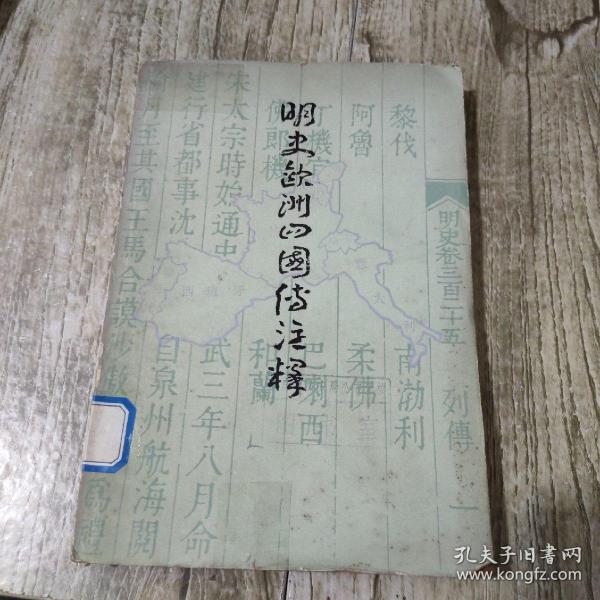 明史欧洲四國传注釋
明史卷三百二十五
列傳
黎伐
南渤利
阿魯
柔佛
丁機宜
巴喇西
佛郎機
和蘭
朱太宗時始通中
武三年八月命
建行省都事沈
自泉州航海閱
丹至其國王馬合謨沙
為禮
孔夫子旧书网
www.kongfz.com